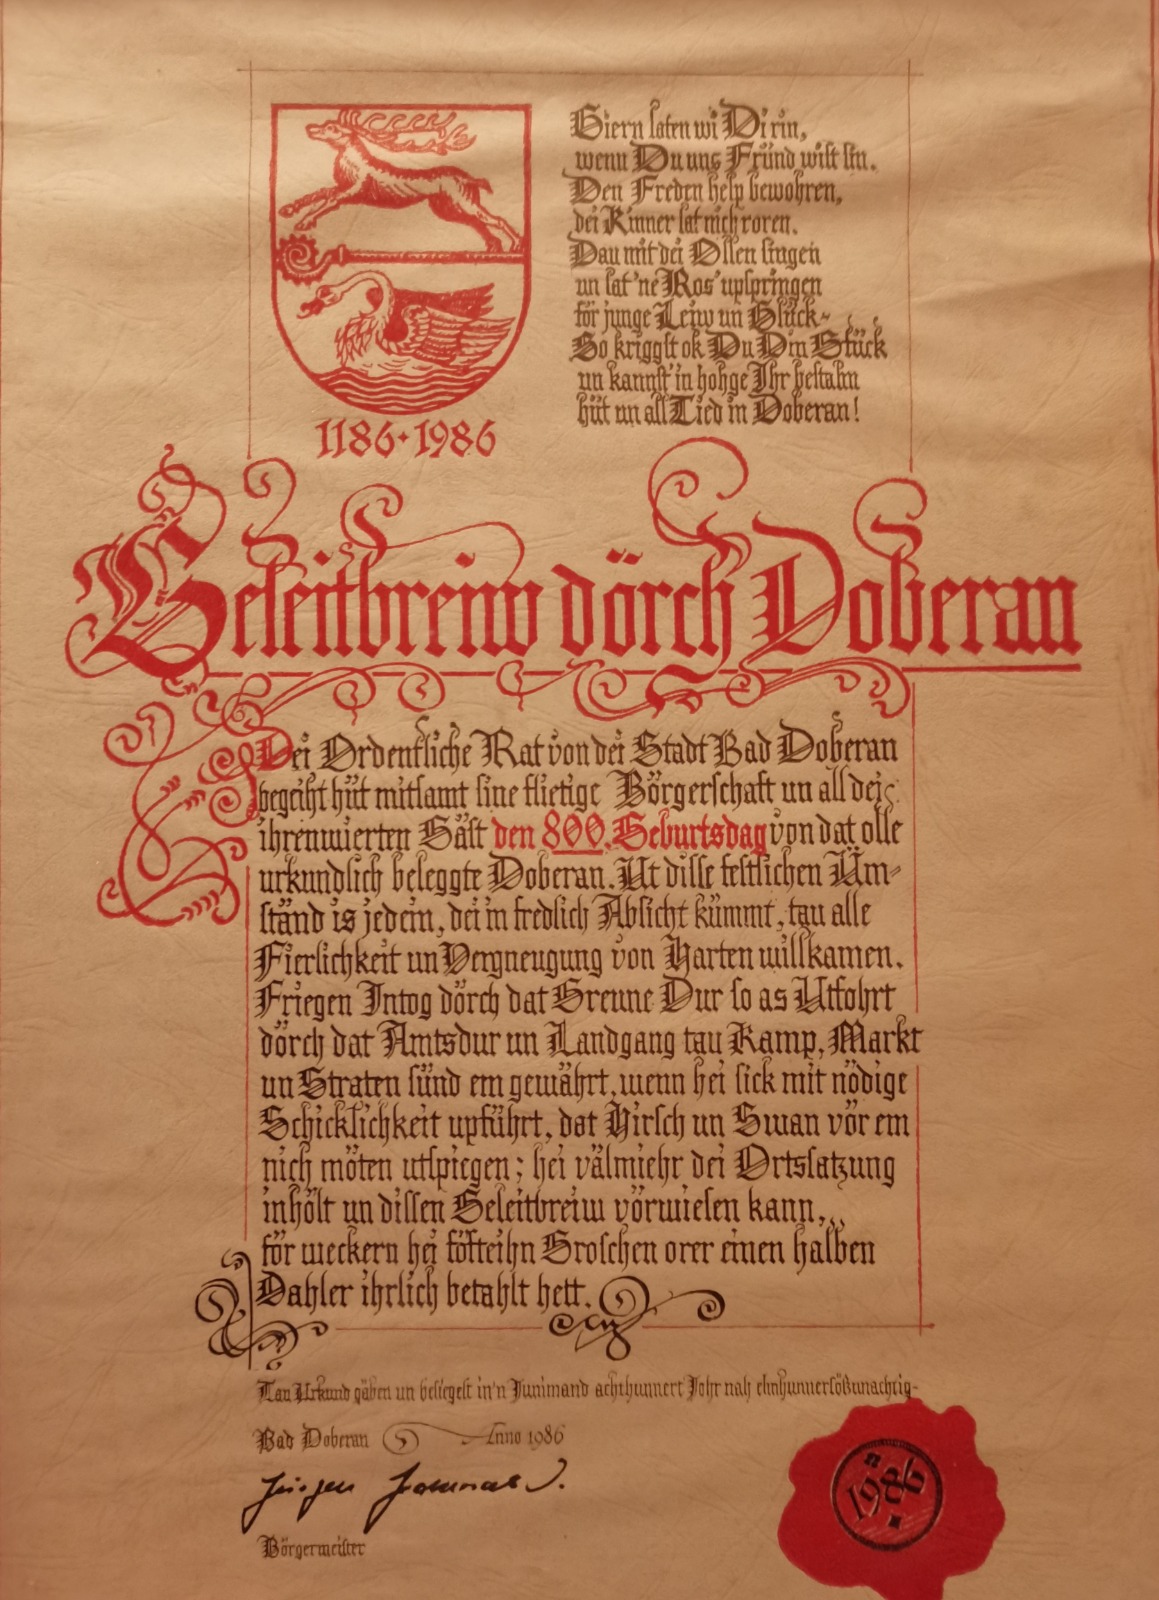 Giern laten wi Di rin,
wenn Du uns Fründ wist sin.
Den Freden help bewohren,
dei Kinner lat nich roren.
Dau mit dei Ollen singen
un lat 'ne Ros' upspringen
för junge Leiw un Glück-
So kriggst ok Du Din Stück
un kannst in hohge Ihr bestahn
hüt un all Tied in Doberan!
1186·1986
Geleitbreiw dörch Doberan
Dei Ordentliche Rat von dei Stadt Bad Doberan
begeiht hüt mitsamt sine flietige Börgerschaft un all dei
ihrenwierten Gäst den 800. Geburtsdag von dat olle
urkundlich beleggte Doberan. Ut disse festlichen Üm-
ständ is jedein, dei in fredlich Absicht kümmt, tau alle
Fierlichkeit un Vergneugung von Harten willkamen.
Friegen Intog dörch dat Greune Dur so as Utfohrt
dörch dat Amtsdur un Landgang tau Kamp, Markt
un Straten sünd em gewährt, wenn hei sick mit nödige
Schicklichkeit upführt, dat Hirsch un Swan vör em
nich möten utspiegen; hei välmiehr dei Ortssatzung
inhölt un dissen Geleitbreiw vörwiesen kann,
för weckern hei föfteihn Groschen orer einen halben
Dahler ihrlich betahlt hett.
Tau Urkund gäben un besiegelt in'n Junimand achthunnert Johr nah
Bad Doberan Anno 1986
Jürgen
Börgermeister
1986